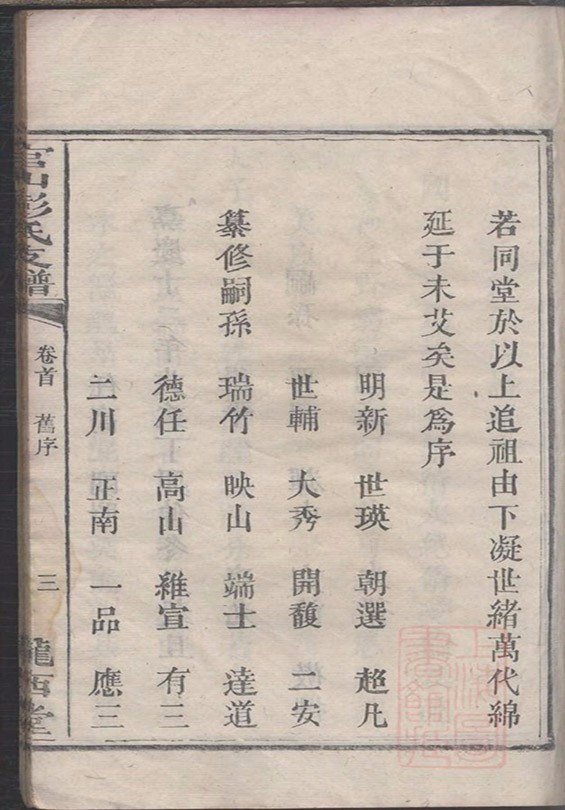 若同堂於以上追祖由下凝世緒萬代綿
延于未艾矣是為序
明新 世瑛 朝選 超凡
世輔 大秀 開馥 二安
纂修嗣孫 瑞竹 映山 端士 達道
德任 高山 維宣 有三
二川 正南 一品 應三
官山彭氏支譜
卷首 舊序
三
隴西堂
上海圖書館藏